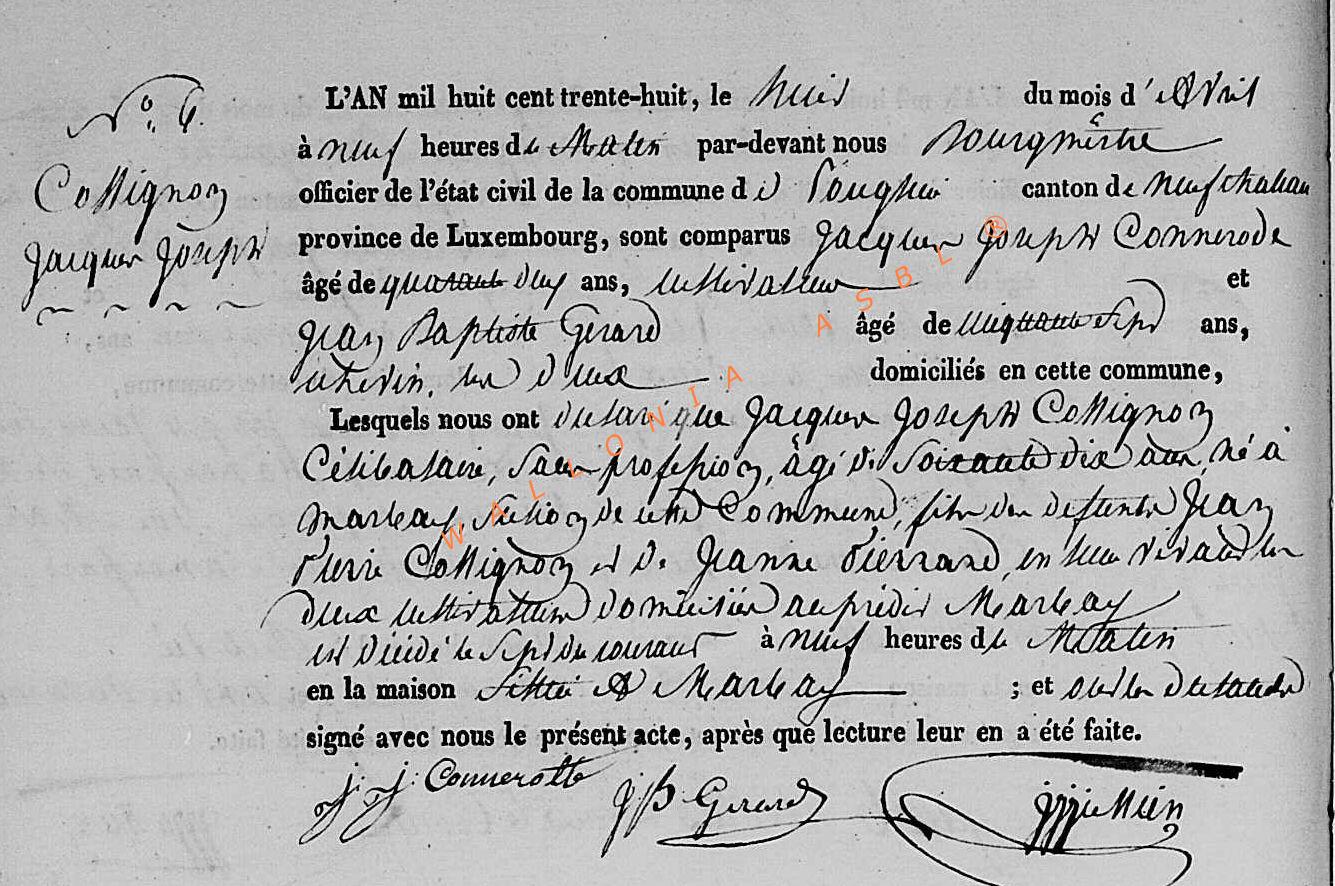 N° 6.
Collignon
Jacques Joseph
L'AN mil huit cent trente-huit, le huit du mois d'Avril
à neuf heures du Matin par-devant nous Bourgmestre
officier de l'état civil de la commune de canton de Neufchateau
province de Luxembourg, sont comparus Jacques Joseph Connerode
âgé de quarante deux ans, cultivateur et
Jean Baptiste Gerard âgé de cinquante sept ans,
échevin, les deux domiciliés en cette commune,
Lesquels nous ont déclaré que Jacques Joseph Collignon
Célibataire, sans profession, âgé de soixante dix ans, né à
Marbay, section de cette Commune, fils des défunts Jean
Pierre Collignon et de Jeanne Pierrard, en leur vivant les
deux cultivateurs domiciliés au prédit Marbay
est décédé le sept du courant à neuf heures du Matin
en la maison sittée à Marbay ; et ont les déclarants
signé avec nous le présent acte, après que lecture leur en a été faite.
J. J. Connerotte
JB Gerard
WALLONIA ASBL ®